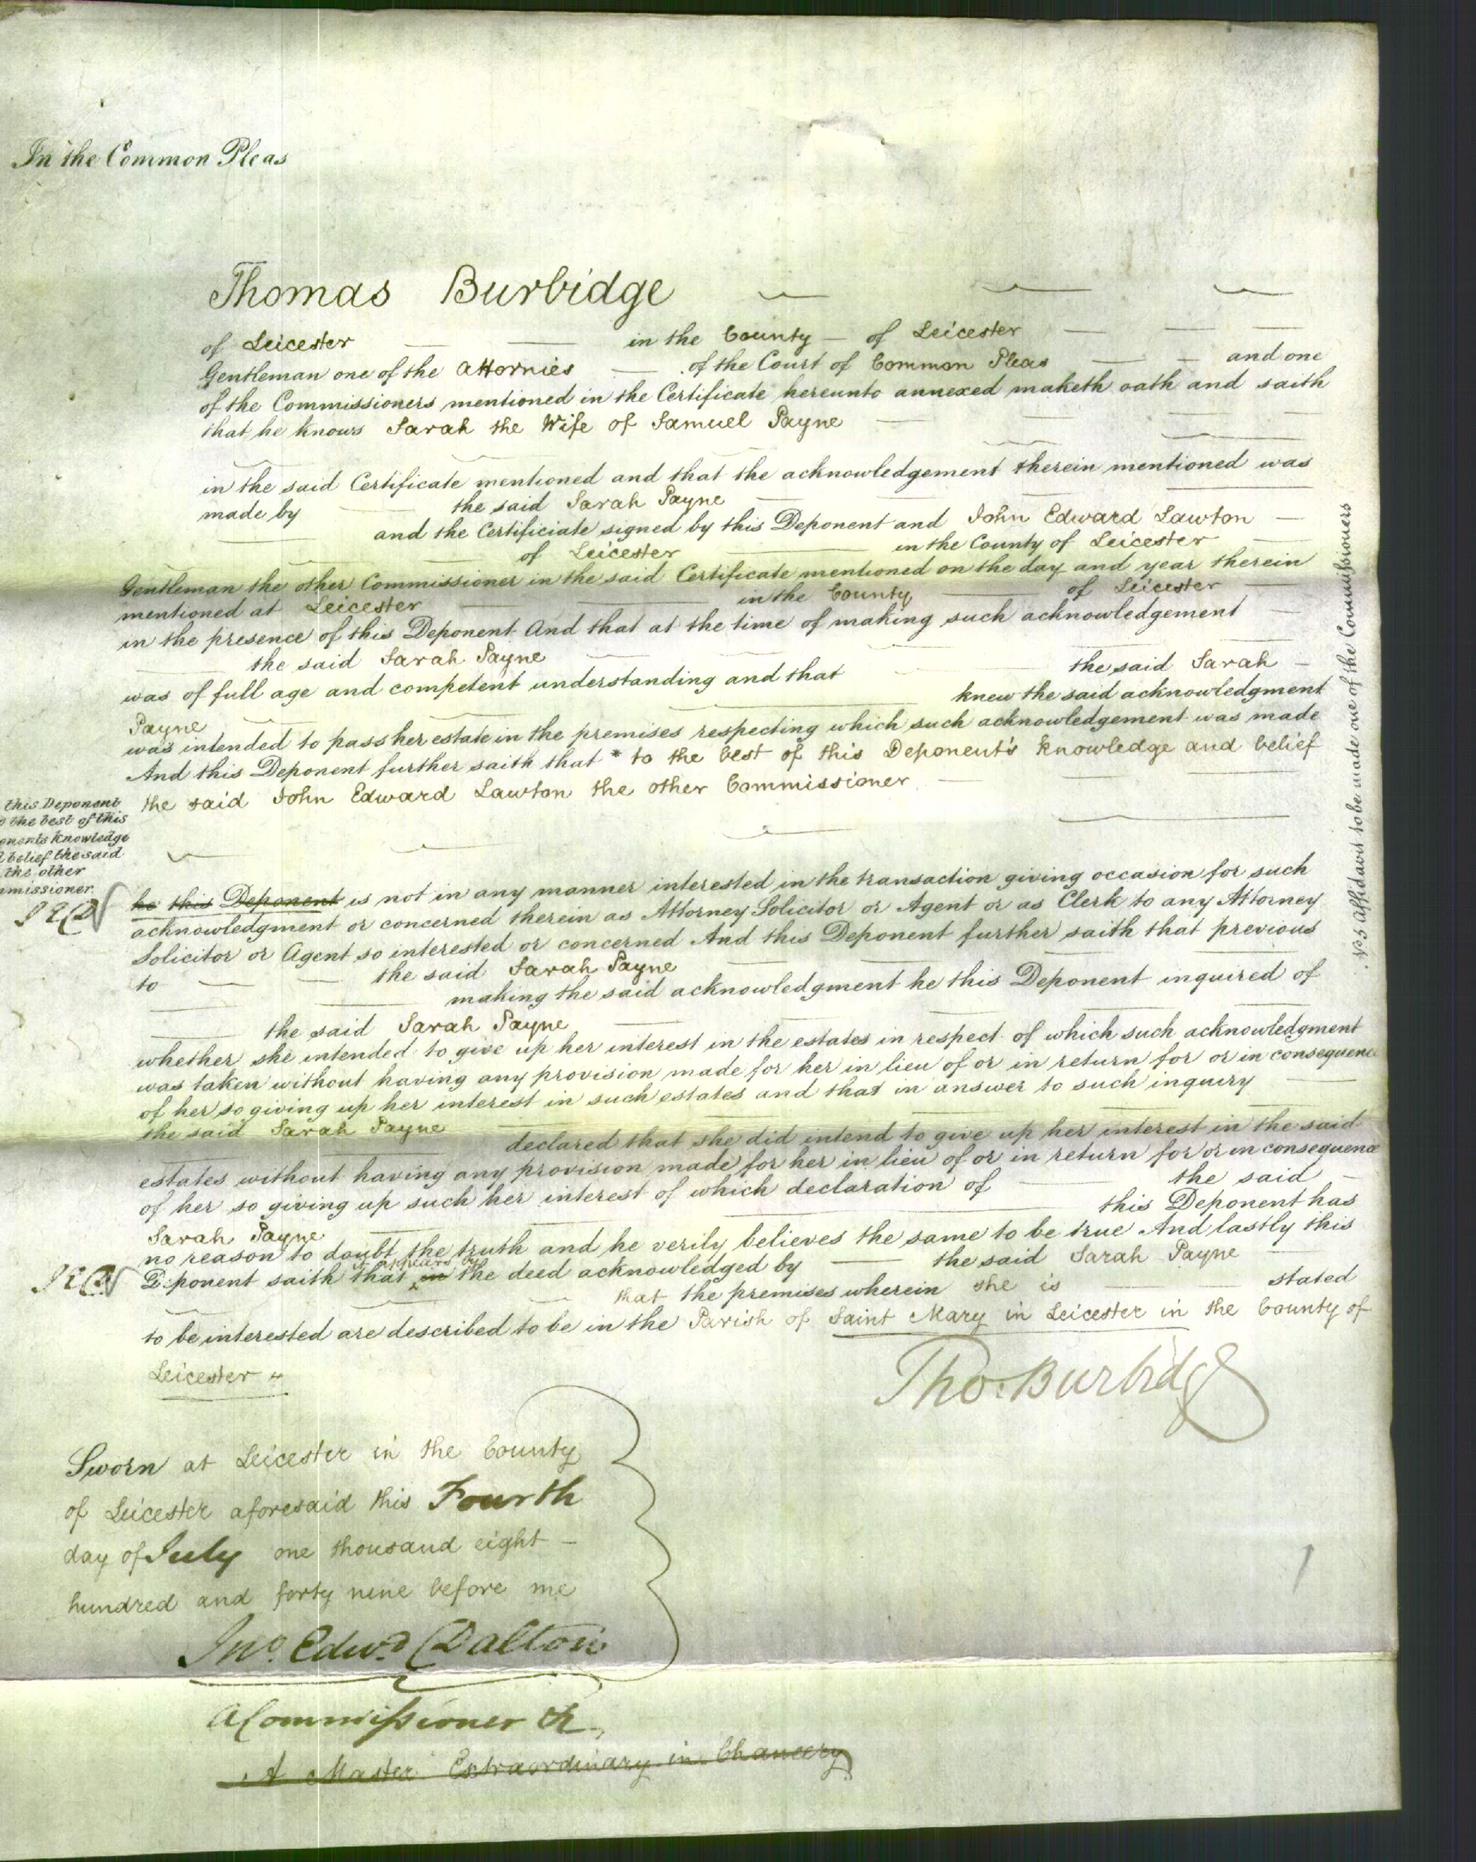 In the Common Pleas
Thomas Burbidge
of Leicester in the County of Leicester
Gentleman one of the Attornies of the Court of Common Pleas and one
of the Commissioners mentioned in the Certificate hereunto annexed maketh oath and saith
that he knows Sarah the Wife of Samuel Payne
in the said Certificate mentioned and that the acknowledgement therein mentioned was
made by the said Sarah Payne
and the Certificiate signed by this Deponent and John Edward Lawton
of Leicester in the County of Leicester
Gentleman the other Commissioner in the said Certificate mentioned on the day and year therein
mentioned at Leicester in the County of Leicester
in the presence of this Deponent And that at the time of making such acknowledgement
the said Sarah Payne
was of full age and competent understanding and that the said Sarah
Payne knew the said acknowledgment
was intended to pass her estate in the premises respecting which such acknowledgement was made
And this Deponent further saith that * to the best of this Deponent's knowledge and belief
the said John Edward Lawton the other Commissioner
this Deponent
the best of this
knowledge
belief the said
the other
he this Deponent is not in any manner interested in the transaction giving occasion for such
acknowledgment or concerned therein as Attorney Solicitor or Agent or as Clerk to any Attorney
Solicitor or Agent so interested or concerned And this Deponent further saith that previous
to the said Sarah Payne
making the said acknowledgment he this Deponent inquired of
the said Sarah Payne
whether she intended to give up her interest in the estates in respect of which such acknowledgment
was taken without having any provision made for her in lieu of or in return for or in consequence
of her so giving up her interest in such estates and that in answer to such inquiry
the said Sarah Payne declared that she did intend to give up her interest in the said
estates without having any provision made for her in lieu of or in return for or in consequence
of her so giving up such her interest of which declaration of the said
Sarah Payne this Deponent has
no reason to doubt the truth and he verily believes the same to be true And lastly this
Deponent saith that it appears by in the deed acknowledged by the said Sarah Payne
that the premises wherein she is stated
to be interested are described to be in the Parish of Saint Mary in Leicester in the County of
Leicester
Tho. Burbidge
Sworn at Leicester in the County
of Leicester aforesaid this Fourth
day of July one thousand eight
hundred and forty nine before me
Jno. Edwd. Dalton
A Commissioner &c.
A Master Extraordinary in Chancery
No 5 Affidavit to be made one of the Commissioners